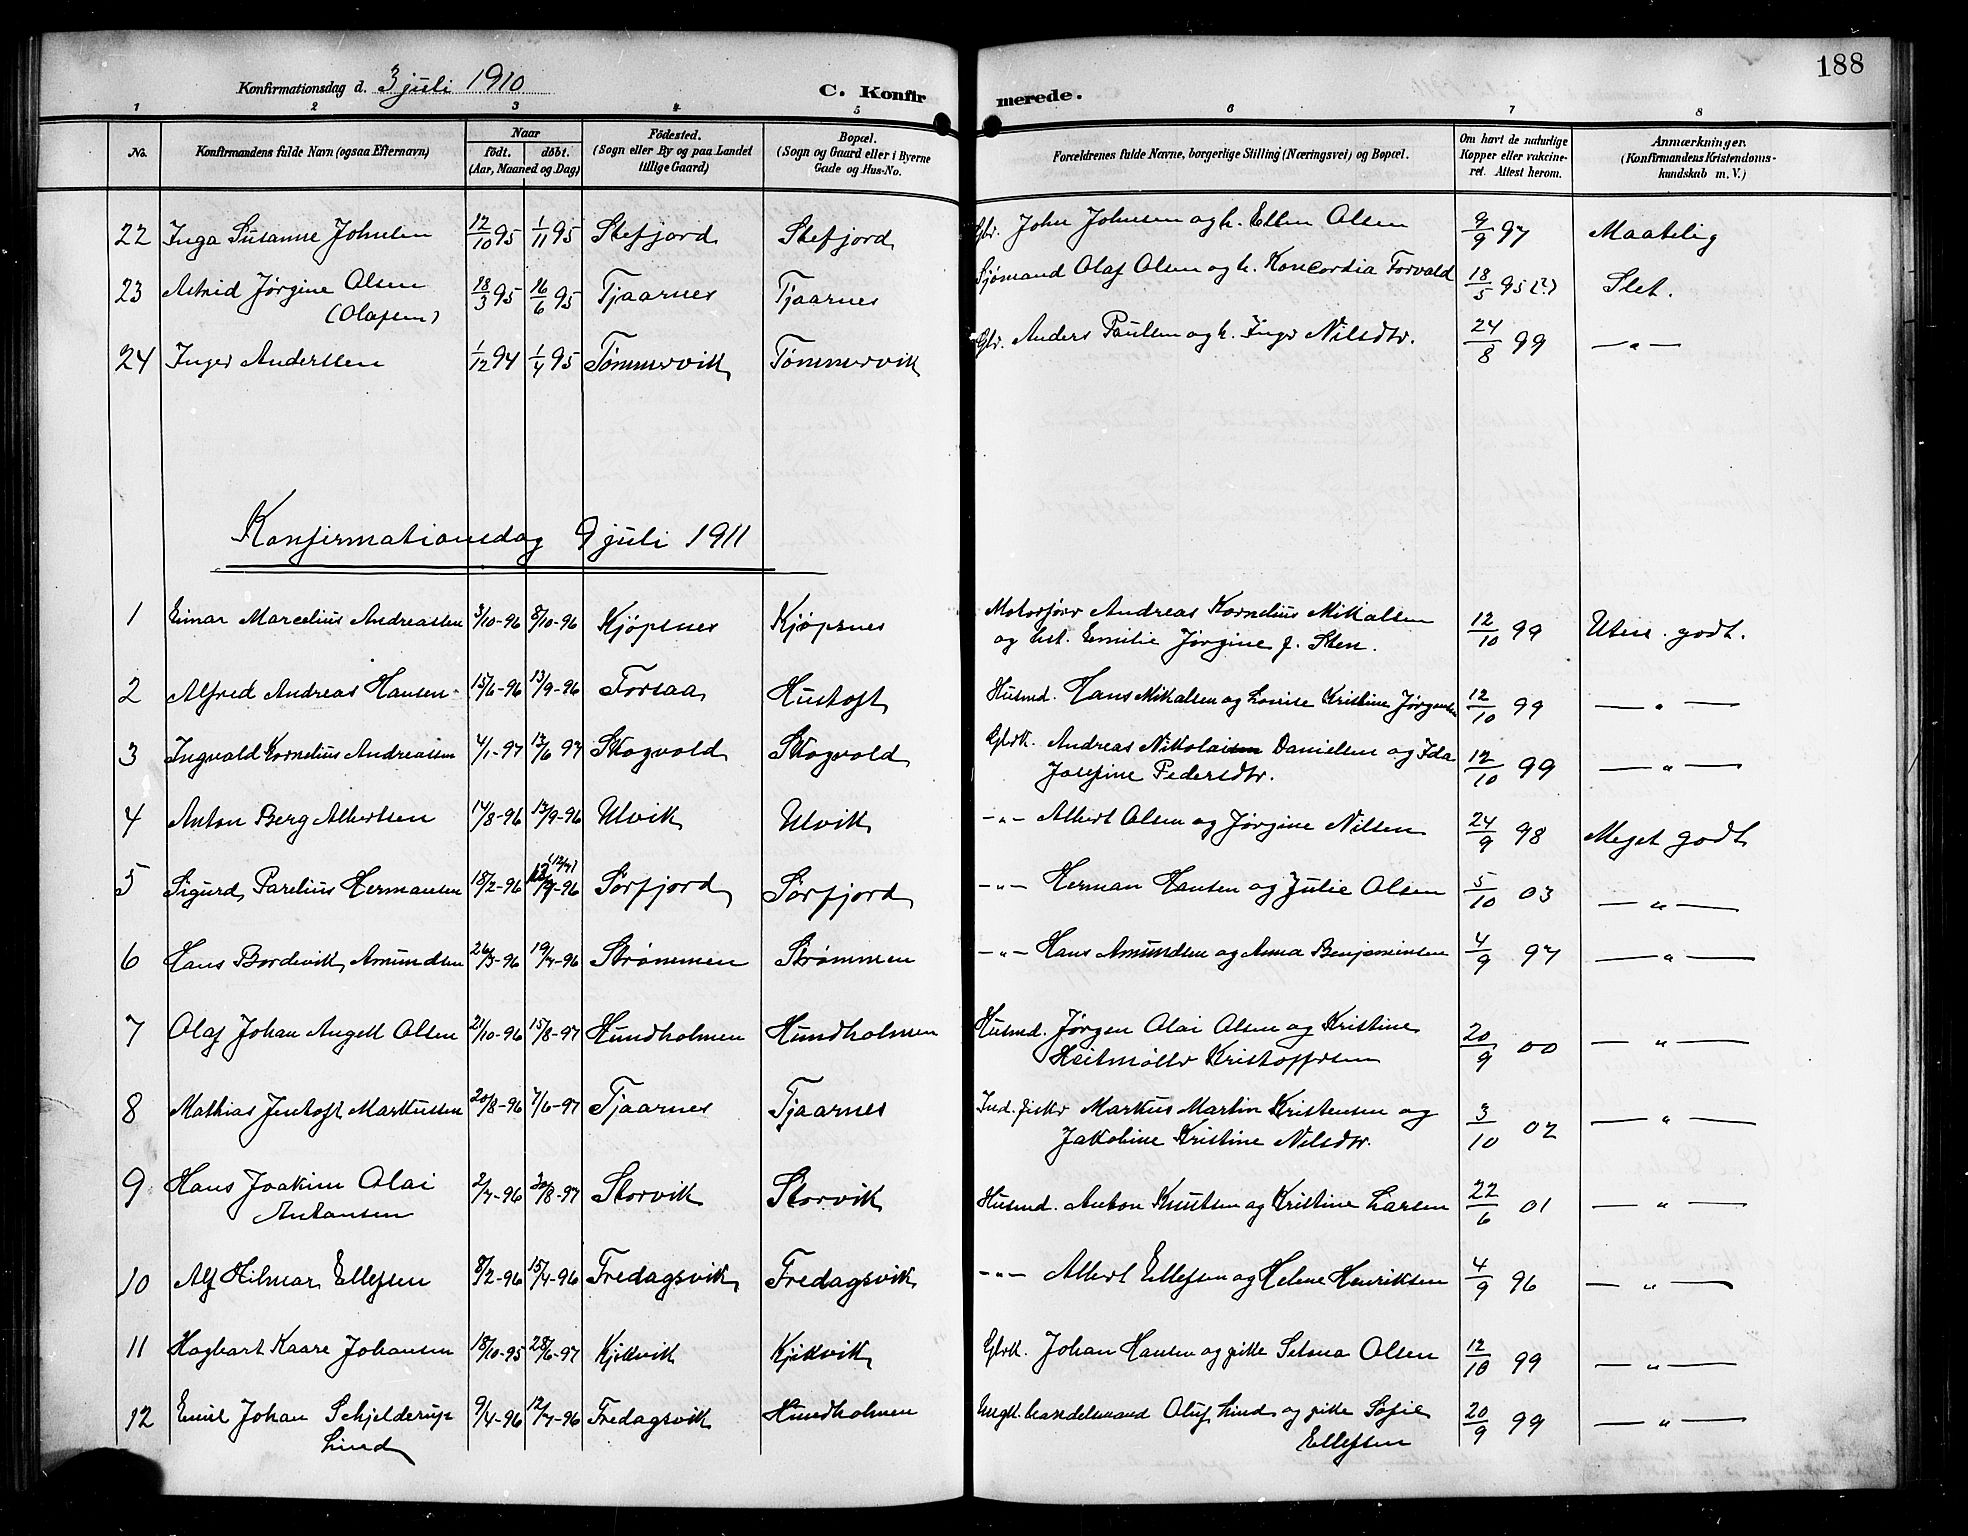 188
Konfirmationsdag d. 3 juli 1910
C. Konfirmerede.
1 2 3 4 5 6 7 8
No.
Konfirmandens fulde Navn (ogsaa Efternavn)
Naar
födt. döbt.
(Aar, Maaned og Dag)
Födested.
(Sogn eller By og paa Landet
tillige Gaard)
Bopæl.
(Sogn og Gaard eller i Byerne
Gade og Hus-No.
Forældrenes fulde Navne, borgerlige Stilling (Næringsvei) og Bopæl.
Om havt de naturlige
Kopper eller vakcine-
ret. Attest herom.
Anmærkninger.
(Konfirmandens Kristendoms-
kundskab m. V.)
22 Inga Susanne Johnsen 12/10 95 1/11 95 Stefjord Stefjord Gbr. John Johnsen og h. Ellen Olsen 9/9 97 Maatelig
23 Astrid Jørgine Olsen 18/3 95 16/6 95 Tjaarnes Tjaarnes Sjømand Olaf Olsen og h. Koncordia Torvald 18/5 95 (?) Slet.
(Olafsen)
24 Inger Anderssen 1/12 94 1/4 95 Tømmervik Tømmervik Gbr. Anders Paulsen og h. Inger Nilsdtr. 24/8 99 — " —
Konfirmationsdag 9 juli 1911
1 Einar Marcelius Andreassen 3/10-96 8/10-96 Kjøpsnes Kjøpsnes Motorfører Andreas Kornelius Mikalsen
og hst. Emilie Jørgine f. Sten. 12/10 99 godt.
2 Alfred Andreas Hansen 15/6-96 13/9-96 Forsaa Hustoft Husmd. Hans Mikalsen og Lovise Kristine Jørgensen 12/10 99 — " —
3 Ingvald Kornelius Andreassen 4/1-97 17/6 97 Skogvold Skogvold Gbrk. Andreas Nikolaisen Danielsen og Ida
Josefine Pedersdtr. 12/10 99 — " —
4 Anton Berg Albertsen 14/8-96 13/9-96 Ulvik Ulvik — " — Albert Olsen og Jørgine Nilsen 24/9 98 Meget godt
5 Sigurd Parelius Hermansen 18/2-96 (12/7) -96 Sørfjord Sørfjord — " — Herman Hansen og Julie Olsen 5/10 03 — " —
6 Hans Bordevik Amundsen 26/3-96 19/7-96 Strømmen Strømmen — " — Hans Amundsen og Anna Benjaminsen 4/9 97 — " —
7 Olaf Johan Angell Olsen 21/10-96 15/8-97 Hundholmen Hundholmen Husmd. Jørgen Olai Olsen og Kristine
Heitmöller Kristoffersen 20/9 00 — " —
8 Mathias Jentoft Markussen 20/8-96 7/6-97 Tjaarnes Tjaarnes Ind. fisker Markus Martin Kristensen og
Jakobine Kristine Nilsdtr. 3/10 02 — " —
9 Hans Joakim Olai
Antonsen 2/7-96 30/8-97 Storvik Storvik Husmd. Anton Knutsen og Kristine Larsen 22/6 01 — " —
10 Alf Hilmar Ellefsen 8/2-96 15/4-96 Fredagsvik Fredagsvik — " — Albert Ellefsen og Helene Henriksen 4/9 96 — " —
11 Hagbart Kaare Johansen 18/10-95 28/6-97 Kjikvik Kjikvik Gbrk. Johan Hansen og pike Setona Olsen 12/10 99 — " —
12 Emil Johan Schjelderup
Lind 9/4-96 12/7-96 Fredagsvik Hundholmen Ungk. handelsmand Oluf Lind og pike Sofie
Ellefsen 20/9 99 — " —